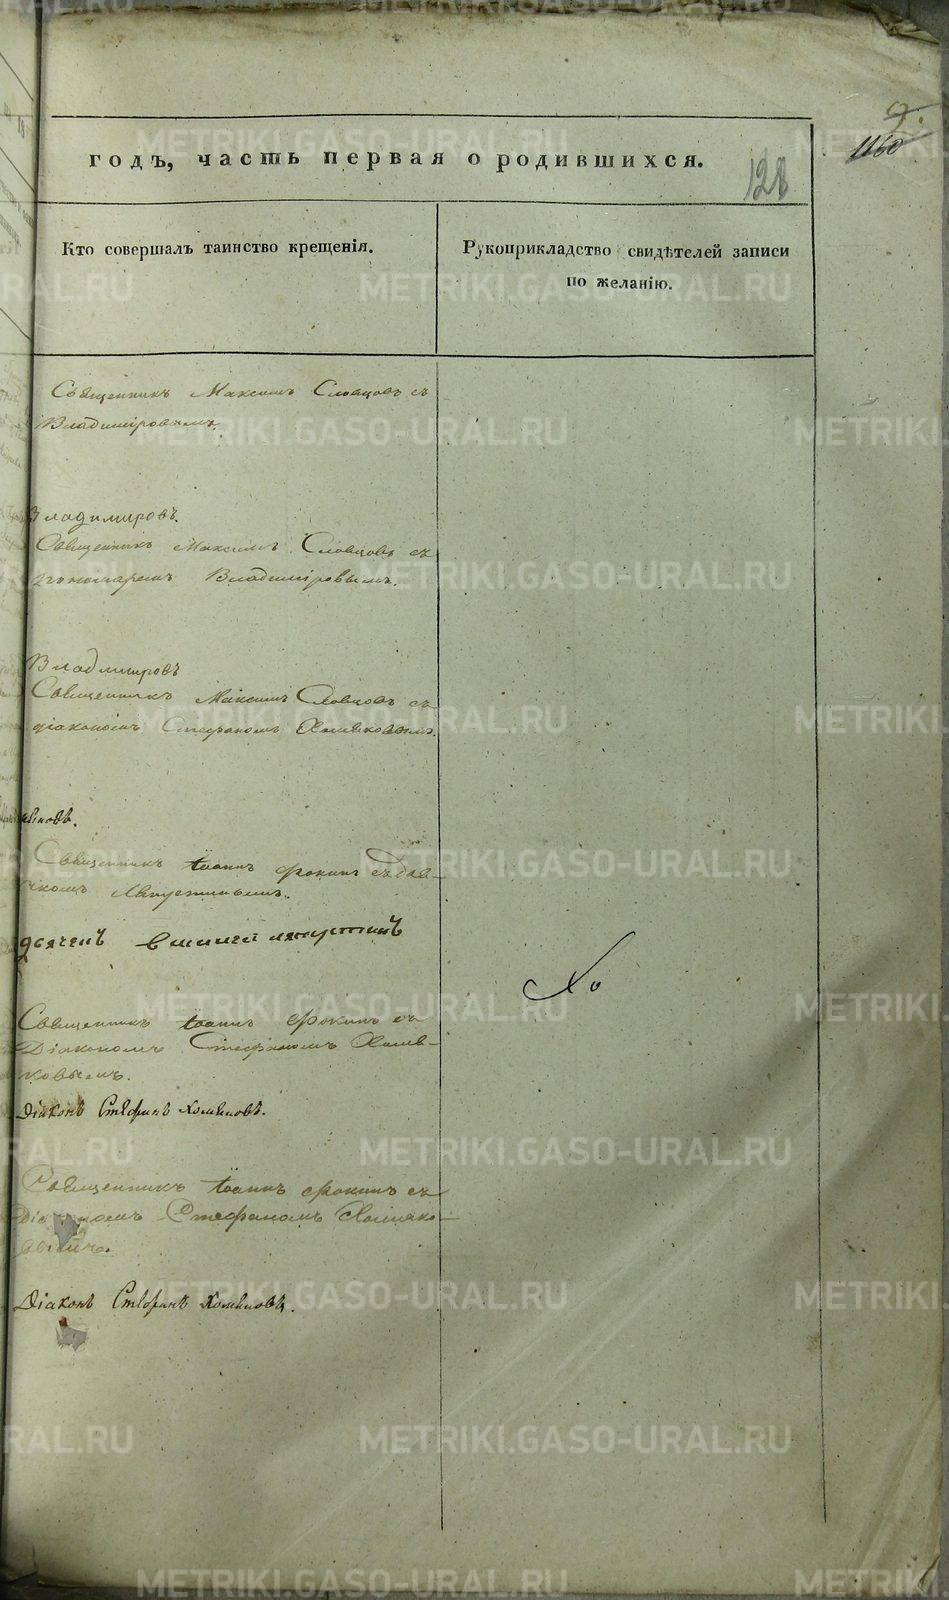 9.
1160
годъ, часть первая о родившихся.
128
Кто совершалъ таинство крещенія.
Рукоприкладство свидѣтелей записи
по желанію.
Священникъ Максимъ Словцовъ съ
Владиміровымъ.
Владимировъ.
Священникъ Максимъ Словцовъ съ
пономаремъ Владиміровымъ.
Владимировъ
Священникъ Максимъ Словцовъ съ
діакономъ Стефаномъ Хомяковымъ.
Священникъ Іоаннъ Фокинъ съ
Священникъ Іоаннъ Фокинъ съ
Діакономъ Стефаномъ Хомя-
ковымъ.
Діаконъ Стефанъ Хомяковъ.
Священникъ Іоаннъ Фокинъ съ
Стефаномъ Хомяко-
Діаконъ Стефанъ Хомяковъ.
METRIKI.GASO-URAL.RU